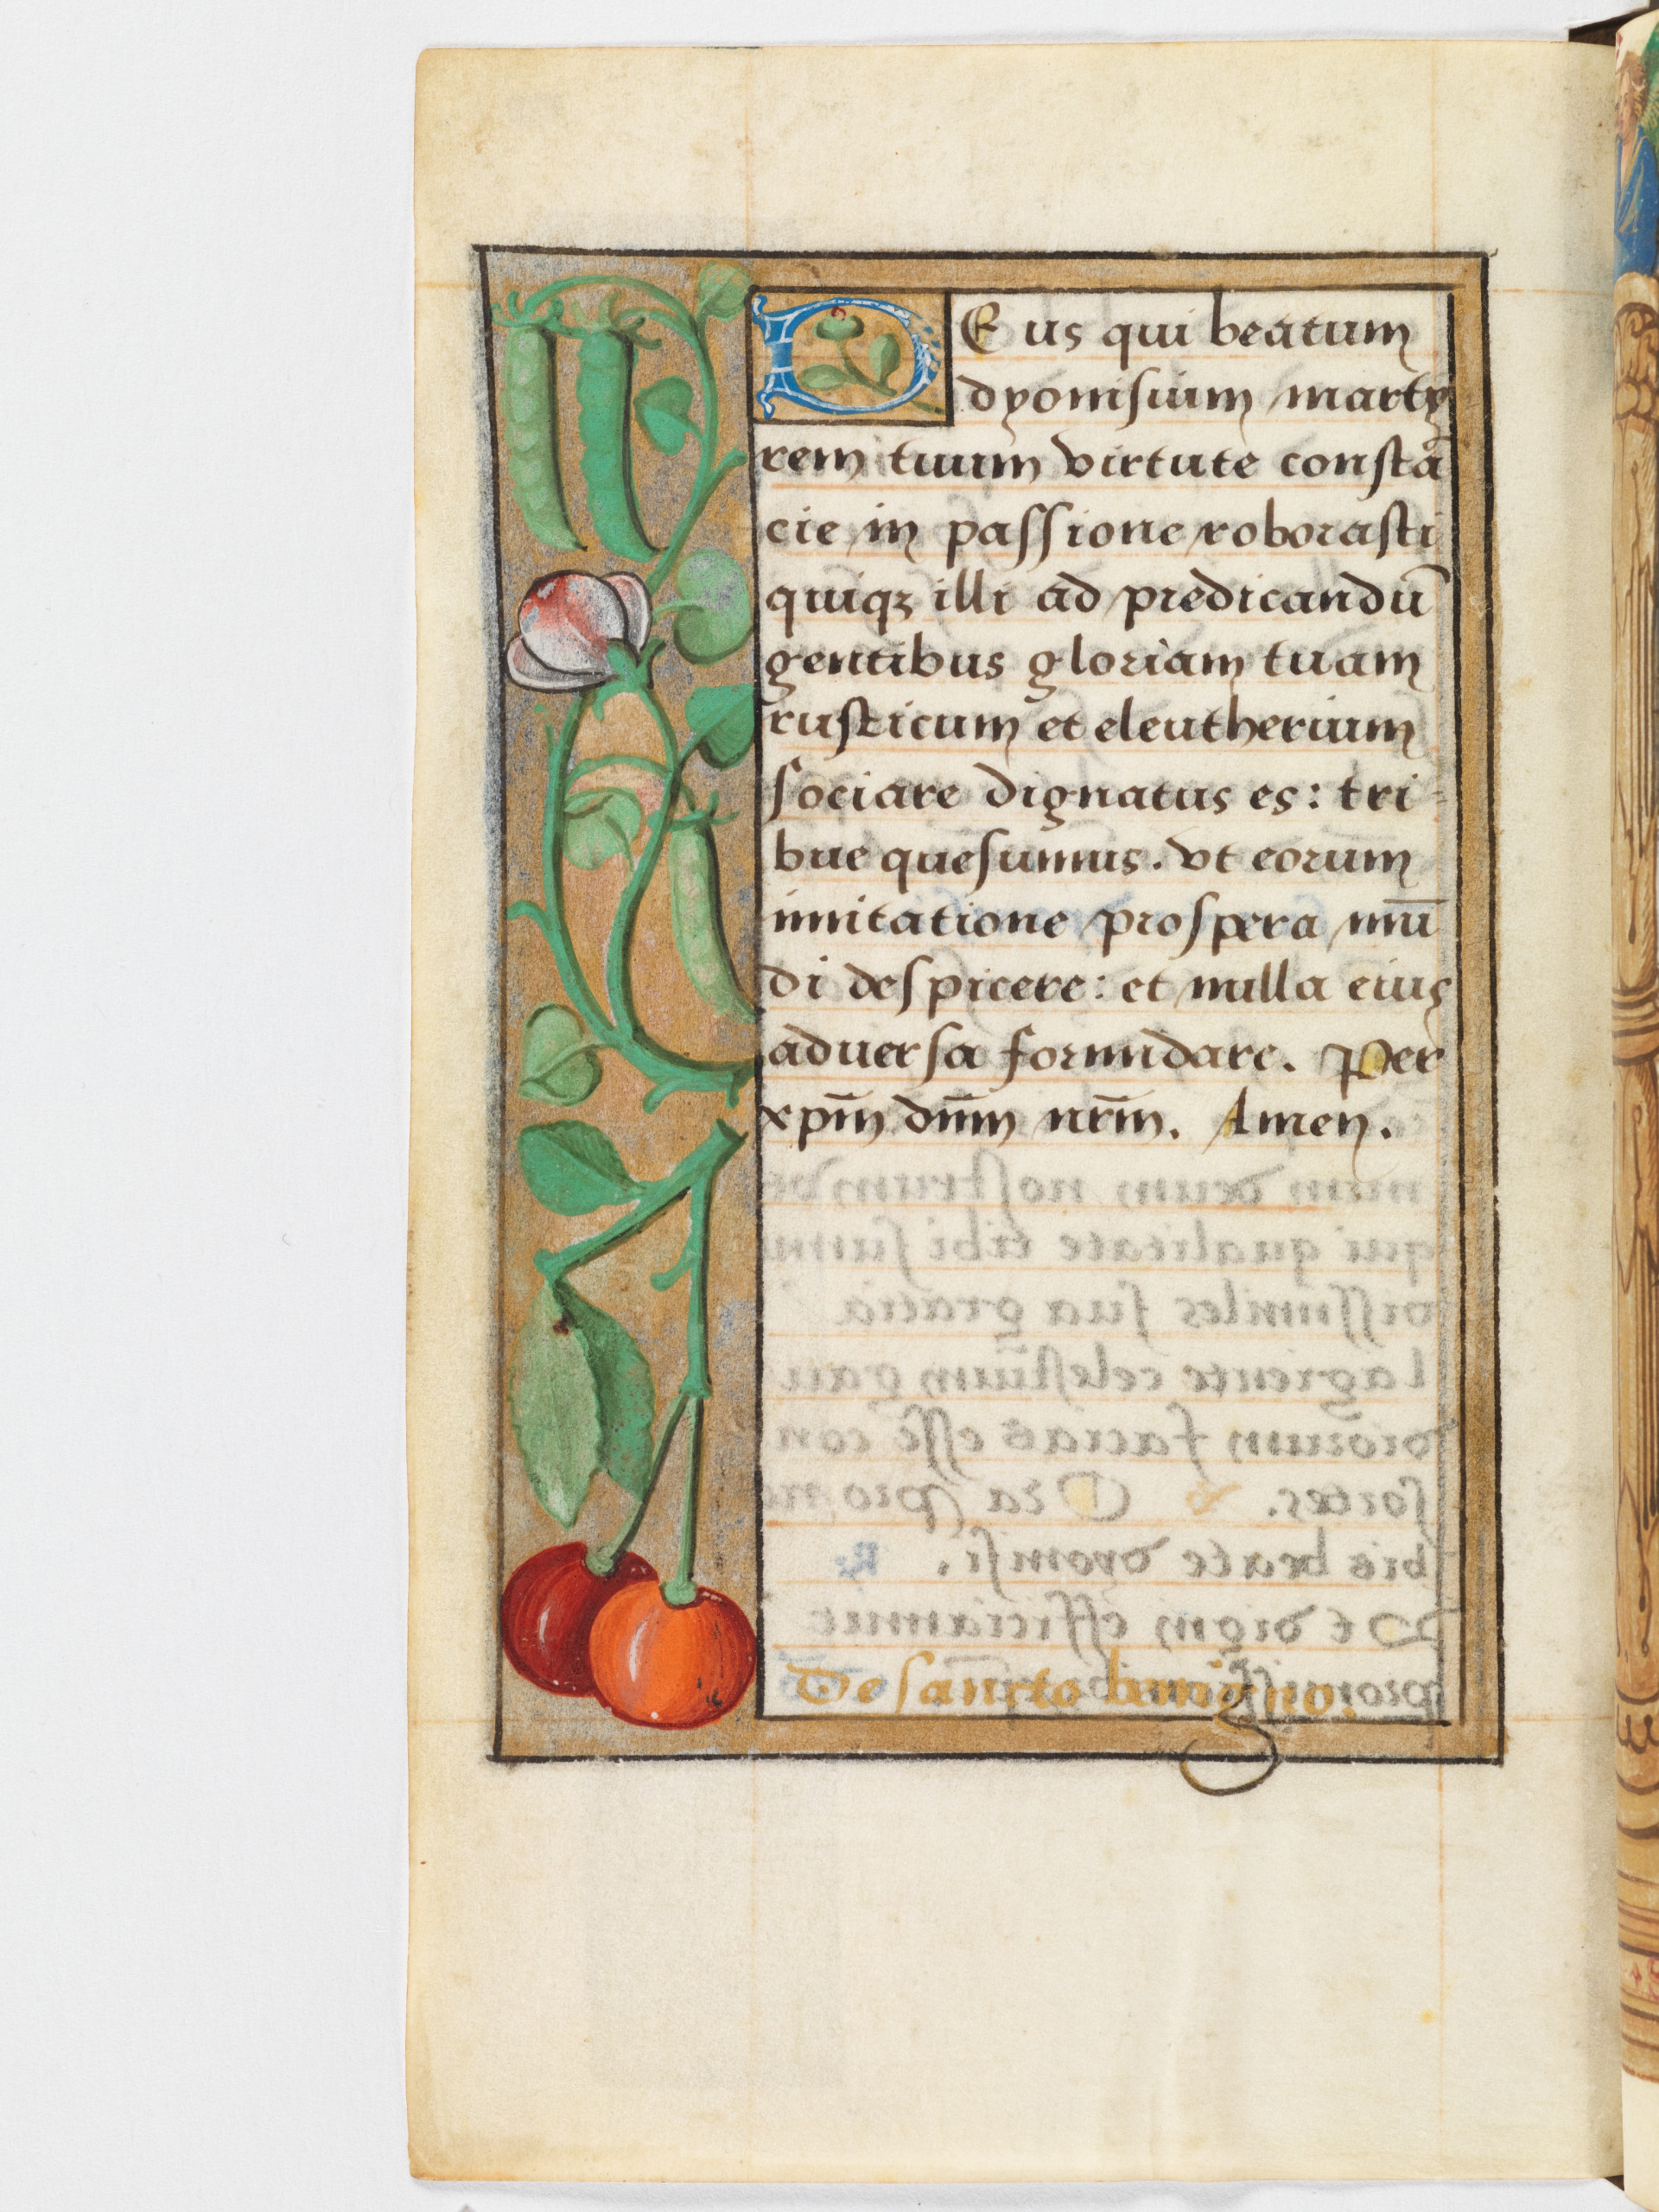 DEus qui beatum
dyonisium marty
rem tuum virtute constā
cie in passione roborasti
quiqꝫ illi ad predicandū
gentibus gloriam tuam
rusticum et eleutherium
sociare dignatus es: tri-
bue quesumus. vt eorum
imitatione prospera mū
di despicere: et nulla eius
aduersa formidare. Per
xp̄m dn̄m nr̄m. Amen.
De sancto benigno.